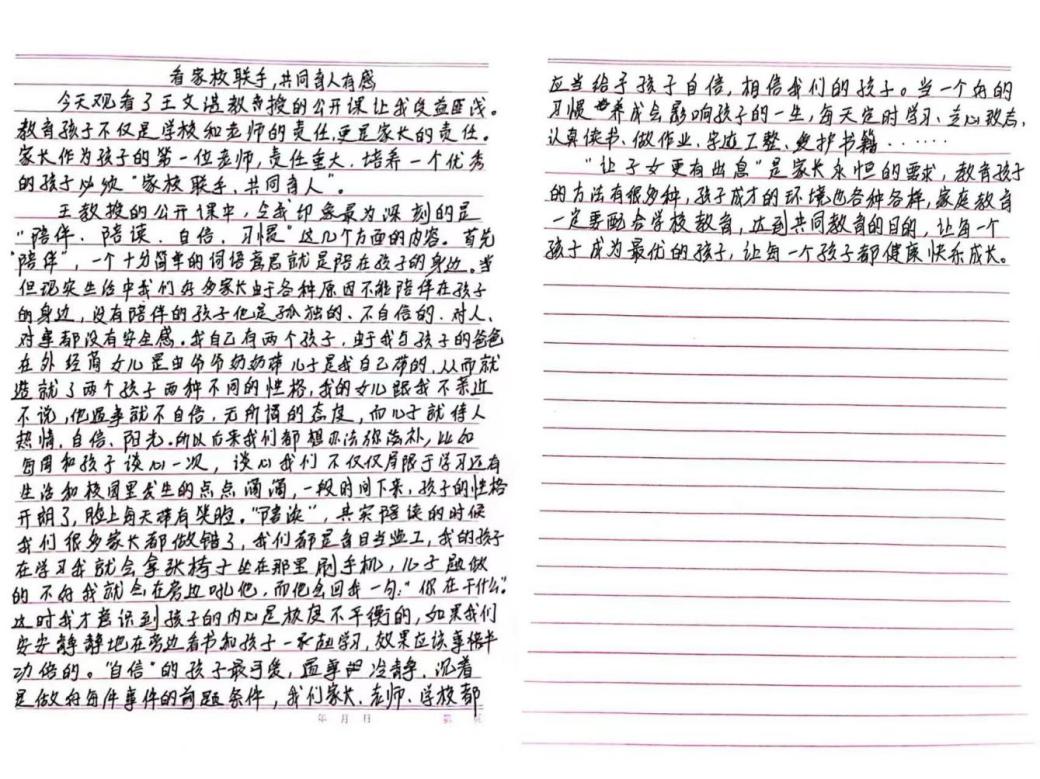 看家校联手,共同育人有感
今天观看了王文湛教授的公开课让我受益匪浅。
教育孩子不仅是学校和老师的责任,更是家长的责任。
家长作为孩子的第一位老师,责任重大.培养一个优秀
的孩子必须“家校联手、共同育人”。
王教授的公开课中,令我印象最为深刻的是
“陪伴、陪读、自信、习惯”这几个方面的内容。首先
“陪伴”,一个十分简单的词语意思就是陪在孩子的身边。当
但现实生活中我们好多家长由于各种原因不能陪伴在孩子
的身边,没有陪伴的孩子他是孤独的、不自信的.对人、
对事都没有安全感。我自己有两个孩子,由于我与孩子的爸爸
在外经商女儿是由爷爷奶奶带儿子是我自己带的,从而就
造就了两个孩子两种不同的性格,我的女儿跟我不亲近
不说,他遇事就不自信,无所谓的态度,而儿子就待人
热情、自信、阳光.所以后来我们都想办法弥补,比如
每周和孩子谈心一次,谈心我们不仅仅局限于学习还有
生活和校园里发生的点点滴滴,一段时间下来,孩子的性格
开朗了,脸上每天带有笑脸。“陪读”,其实陪读的时候
我们很多家长都做错了,我们都是盲目当监工,我的孩子
在学习我就会拿张椅子坐在那里刷手机,儿子题做
的不好我就会在旁边吼他,而他会回我一句:“你在干什么”
这时我才意识到孩子的内心是极度不平衡的,如果我们
安安静静地在旁边看书和孩子一起学习,效果应该事倍半
功倍的。“自信”的孩子最可爱,遇事冷静、沉着
是做好每件事件的前题条件,我们家长、老师、学校都
年 月 日 第 页
应当给予孩子自信,相信我们的孩子。当一个良的
习惯养成会影响孩子的一生,每天定时学习、立心致志、
认真读书、做作业、字迹工整、爱护书籍······
“让子女更有出息”是家长永恒的要求,教育孩子
的方法有很多种,孩子成才的环境也各种各样,家庭教育
一定要配合学校教育,达到共同教育的目的,让每一个
孩子成为最优的孩子,让每一个孩子都健康快乐成长。